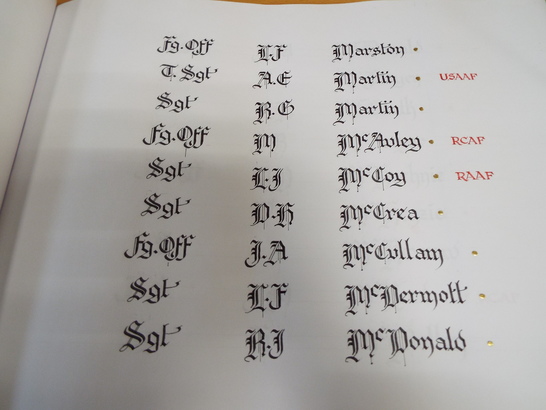 Fg.Off L.F Marston
T.Sgt A.E Martin USAAF
Sgt R.G Martin
Fg.Off M McAuley RCAF
Sgt L.J McCoy RAAF
Sgt D.H McCrea
Fg.Off J.A McCullam
Sgt L.F McDermott
Sgt R.J McDonald